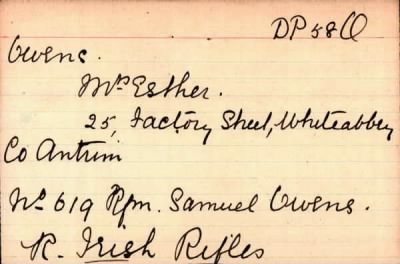 DP 58 Q
Owens.
Mrs Esther.
25, Factory Street, Whiteabbey
Co Antrim
No 619 Rfm. Samuel Owens.
R. Irish Rifles